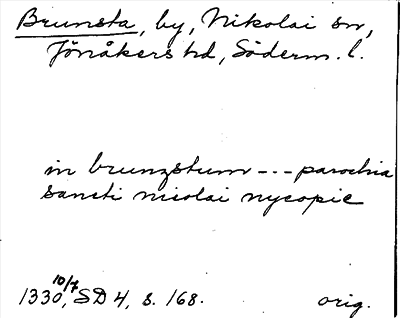 Brunsta, by, Nikolai sn,
Jönåkers hd, Söderm. l.
in brunzstum --- parochia
sancti nicolai nycopie
1330 10/7, SD 4, s. 168. orig.